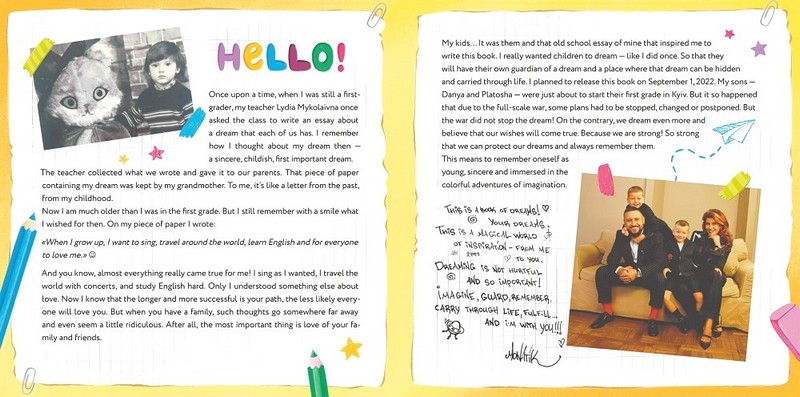 HELLO!
Once upon a time, when I was still a first-
grader, my teacher Lydia Mykolaivna once
asked the class to write an essay about
a dream that each of us has. I remember
how I thought about my dream then —
a sincere, childish, first important dream.
The teacher collected what we wrote and gave it to our parents. That piece of paper
containing my dream was kept by my grandmother. To me, it's like a letter from the past,
from my childhood.
Now I am much older than I was in the first grade. But I still remember with a smile what
I wished for then. On my piece of paper I wrote:
«When I grow up, I want to sing, travel around the world, learn English and for everyone
to love me.» ☺
And you know, almost everything really came true for me! I sing as I wanted, I travel the
world with concerts, and study English hard. Only I understood something else about
love. Now I know that the longer and more successful is your path, the less likely every-
one will love you. But when you have a family, such thoughts go somewhere far away
and even seem a little ridiculous. After all, the most important thing is love of your fa-
mily and friends.
My kids... It was them and that old school essay of mine that inspired me to
write this book. I really wanted children to dream — like I did once. So that they
will have their own guardian of a dream and a place where that dream can be hidden
and carried through life. I planned to release this book on September 1, 2022. My sons —
Danya and Platosha — were just about to start their first grade in Kyiv. But it so happened
that due to the full-scale war, some plans had to be stopped, changed or postponed. But
the war did not stop the dream! On the contrary, we dream even more and
believe that our wishes will come true. Because we are strong! So strong
that we can protect our dreams and always remember them.
This means to remember oneself as
young, sincere and immersed in the
colorful adventures of imagination.
THIS IS A BOOK OF DREAMS!
YOUR DREAMS.
THIS IS A MAGICAL WORLD
OF INSPIRATION - FROM ME
TO YOU.
DREAMING IS NOT HURTFUL
AND SO IMPORTANT!
IMAGINE, GUARD, REMEMBER,
CARRY THROUGH LIFE, FULFILL...
AND I'M WITH YOU!!!